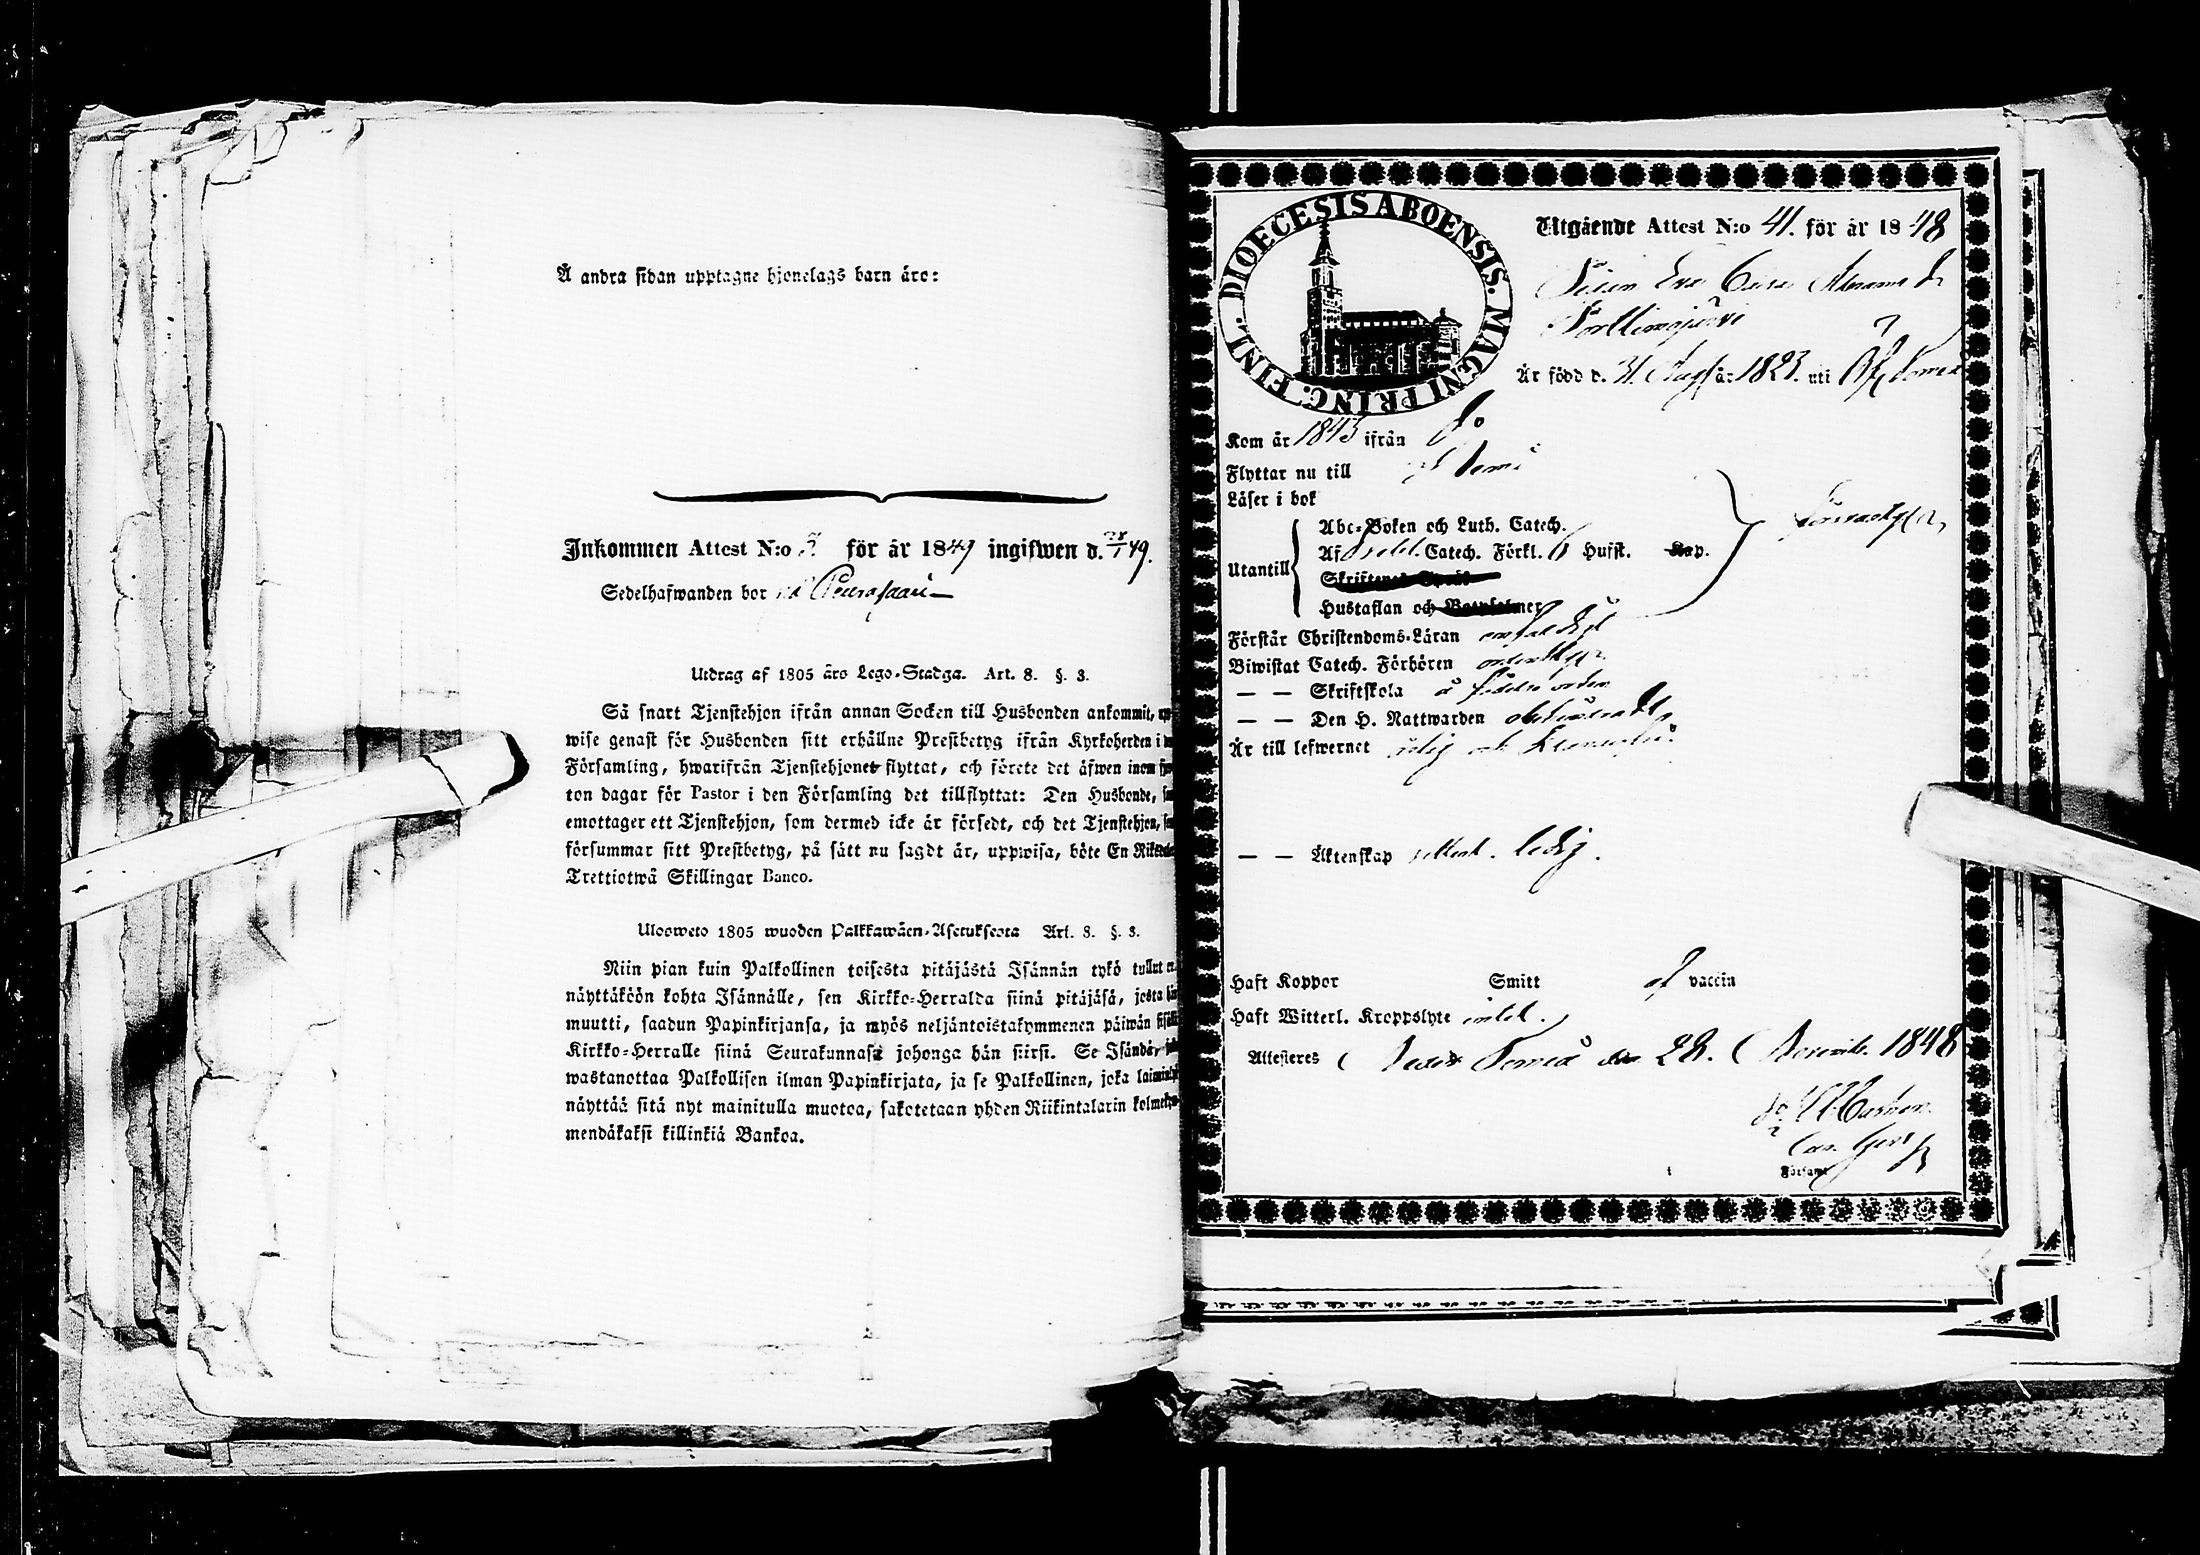 Å andra sidan upptagne hjonelags barn äro:
Inkommen Attest N:o för år 1849 ingifwen d. 28/1 49.
Sedelhafwanden bor på Peurasaari
Utdrag af 1805 års Lego-Stadga. Art. 8. §. 3.
Så snart Tjenstehjon ifrån annan Socken till Husbonden ankommit, upp-
wise genast för Husbonden sitt erhållne Prestbetyg ifrån Kyrkoherden i
Församling, hwarifrån Tjenstehjonet flyttat, och förete det äfwen inom
ton dagar för Pastor i den Församling det tillflyttat: Den Husbonde,
emottager ett Tjenstehjon, som dermed icke är försedt, och det Tjenstehjon,
försummar sitt Prestbetyg, på sätt nu sagdt är, uppwisa, böte En
Trettiotwå Skillingar Banco.
Ulosweto 1805 wuoden Palkkawäen-Asetuksesta Art. 8. §. 3.
Niin pian kuin Palkollinen toisesta pitäjästä Isännän tykö tullut
näyttäköön kohta Isännälle, sen Kirkko-Herralda siinä pitäjäsä, josta
muutti, saadun Papinkirjansa, ja myös neljäntoistakymmenen päiwän
Kirkko-Herralle siinä Seurakunnasa johonga hän siirsi. Se Isändä,
wastanottaa Palkollisen ilman Papinkirjata, ja se Palkollinen, joka
näyttää sitä nyt mainitulla muotoa, sakotetaan yhden Riikintalarin
mendäkaksi killinkiä Bankoa.
DIOECESIS ABOENSIS. MAGNI PRINC. FINL.
Utgående Attest N:o 41. för år 1848
Pigan Eva Abrams d.
Portimojärvi
Är född d. 31. Aug. år 1823. uti Öf. Torneå
Kom år 1843 ifrån do
Flyttar nu till Öf. Torneå
Läser i bok
Abc-Boken och Luth. Catech.
Af Catech. Förkl. Husst. Kap.
Utantill
Skriftenes Språk
försvarligen
Hustaflan och Botpsalmer
Förstår Christendoms-Läran enfaldigt
Biwistat Catech. Förhören ordentligen
— — Skriftskola å
— — Den H. Nattwarden
Är till lefwernet ärlig och
— — Äktenskap ledig.
Haft Koppor Smitt af vaccin
Haft Witterl. Kroppslyte intet.
Attesteras Neder Torneå den 28. November 1848
Församl.